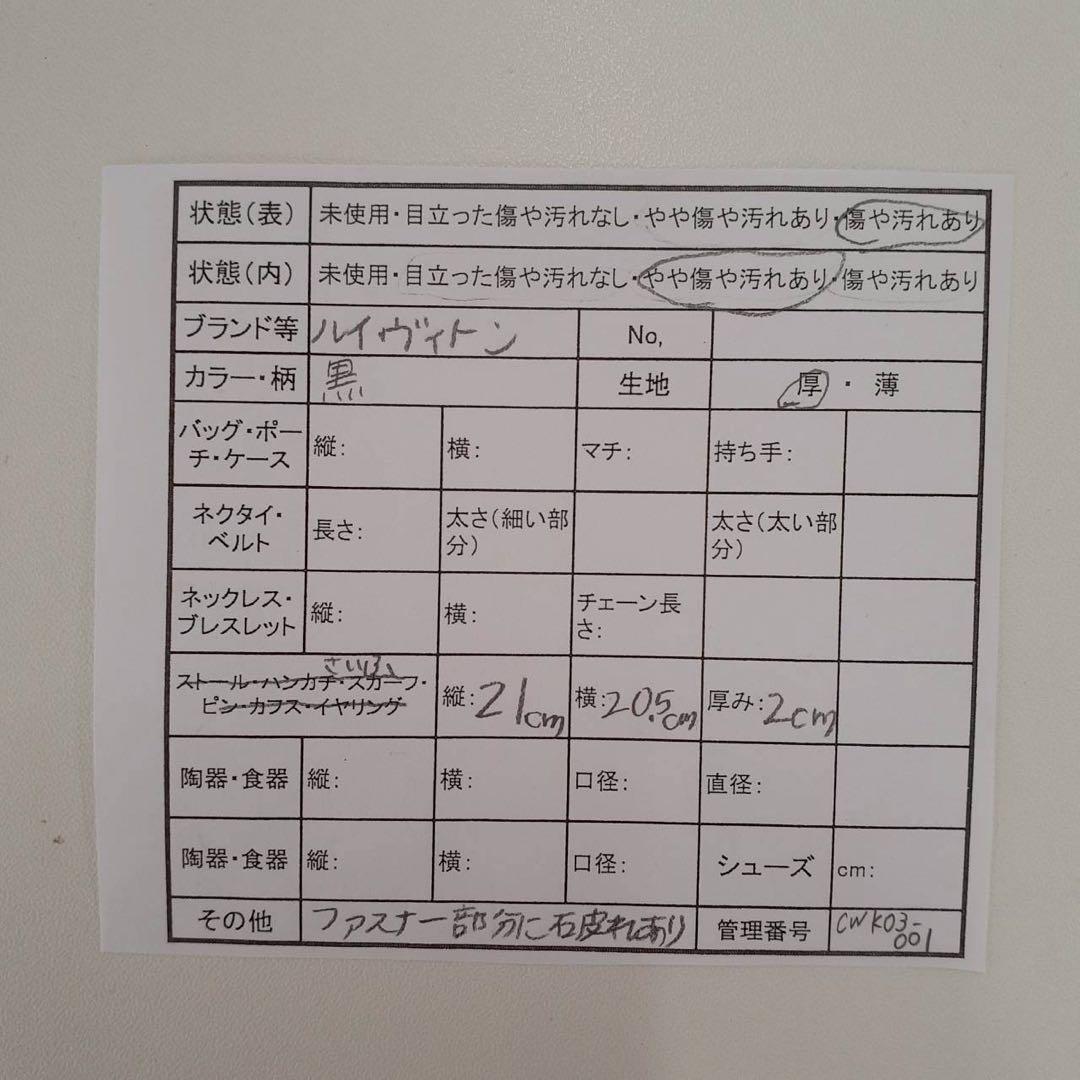 状態(表) 未使用・目立った傷や汚れなし・やや傷や汚れあり・傷や汚れあり
状態(内) 未使用・目立った傷や汚れなし・やや傷や汚れあり・傷や汚れあり
ブランド等 ルイ・ヴィトン No,
カラー・柄 黒 生地 厚・薄
バッグ・ポー
チ・ケース
縦: 横: マチ: 持ち手:
ネクタイ・
ベルト
長さ:
太さ(細い部
分)
太さ(太い部
分)
ネックレス・
ブレスレット
縦: 横:
チェーン長
さ:
さいふ
ストール・ハンカチ・スカーフ・
ピン・カフス・イヤリング
縦:21cm 横:20.5cm 厚み:2cm
陶器・食器 縦: 横: 口径: 直径:
陶器・食器 縦: 横: 口径: シューズ cm:
その他 ファスナー部分に破れあり 管理番号
CWK03-
001